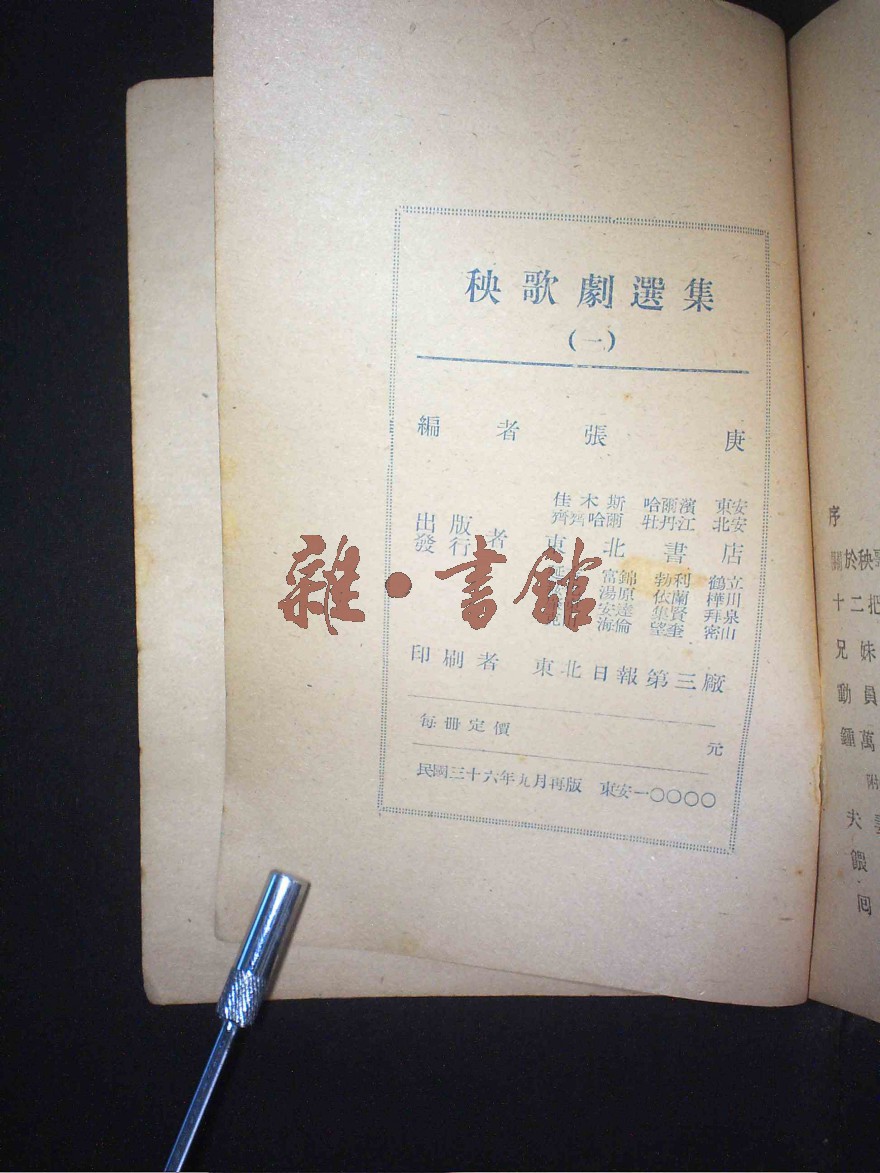 秧歌劇選集
(一)
編者 張庚
佳木斯 哈爾濱 東安
齊齊哈爾 牡丹江 北安
出版
發行者 東北書店
富錦 勃利 鶴立
湯原 依蘭 樺川
安達 集賢 拜泉
海倫 望奎 密山
印刷者 東北日報第三廠
每冊定價 元
民國三十六年九月再版 東安一〇〇〇〇
雜·書館
序
關於秧歌
十二把
兄妹
動員
鍾萬
附
夫妻
餵
回